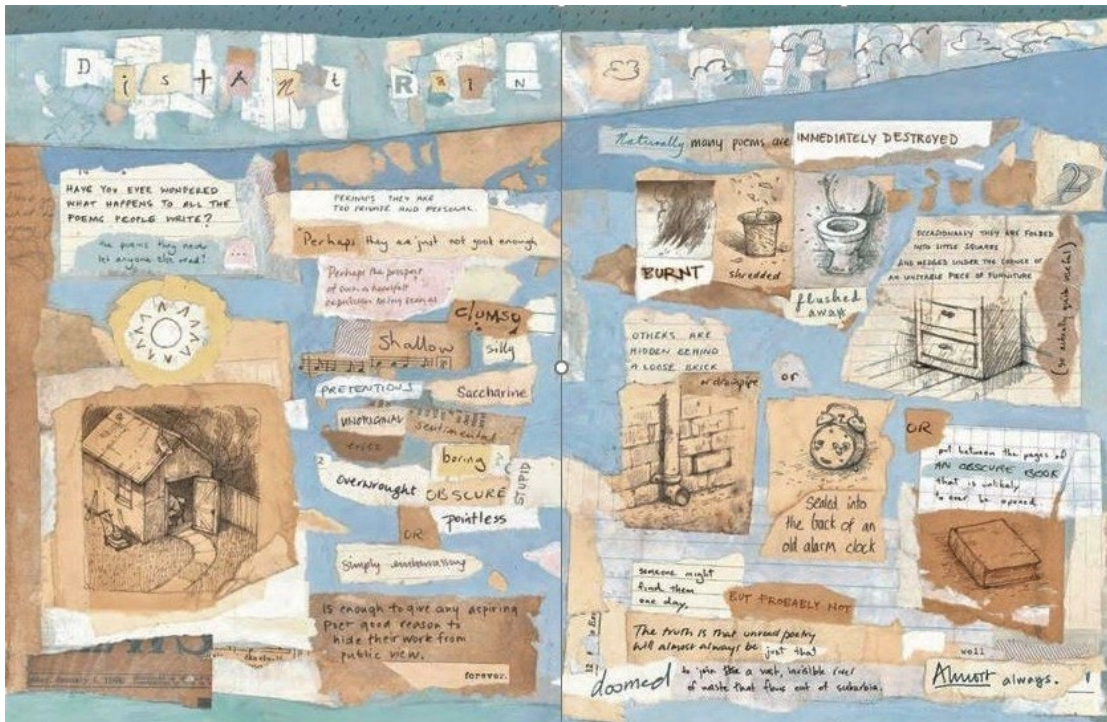 Distant Rain
HAVE YOU EVER WONDERED
WHAT HAPPENS TO ALL THE
POEMS PEOPLE WRITE?
The poems they never
let anyone else read?
PERHAPS THEY ARE
TOO PRIVATE AND PERSONAL
Perhaps they are just not good enough
Perhaps the prospect
of such a heartfelt
expression being seen as
clumsy
shallow
silly
PRETENTIOUS
Saccharine
UNORIGINAL
sentimental
trite
boring
overwrought
OBSCURE
STUPID
pointless
OR
simply embarrassing
is enough to give any aspiring
poet good reason to
hide their work from
public view.
forever.
Naturally many poems are IMMEDIATELY DESTROYED
BURNT
shredded
flushed
away
OCCASIONALLY THEY ARE FOLDED
INTO LITTLE SQUARES
AND WEDGED UNDER THE CORNER OF
AN UNSTABLE PIECE OF FURNITURE
(so actually quite useful)
OTHERS ARE
HIDDEN BEHIND
A LOOSE BRICK
or drainpipe
or
sealed into
the back of an
old alarm clock
OR
put between the pages of
AN OBSCURE BOOK
that is unlikely
to ever be opened
someone might
find them
one day,
BUT PROBABLY NOT
The truth is that unread poetry
will almost always be just that
doomed
to join the a vast, invisible river
of waste that flows out of suburbia.
well
Almost always.